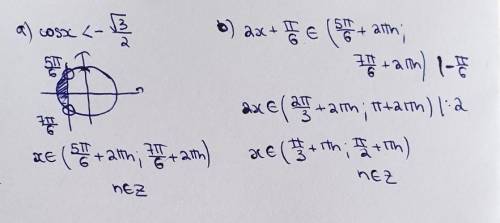 a) cosx < -√3/2
5π/6
7π/6
x∈(5π/6+2πn; 7π/6+2πn)
n∈Z
b) 2x+π/6∈(5π/6+2πn;
7π/6+2πn) |-π/6
2x∈(2π/3+2πn; π+2πn) |:2
x∈(π/3+πn; π/2+πn)
n∈Z